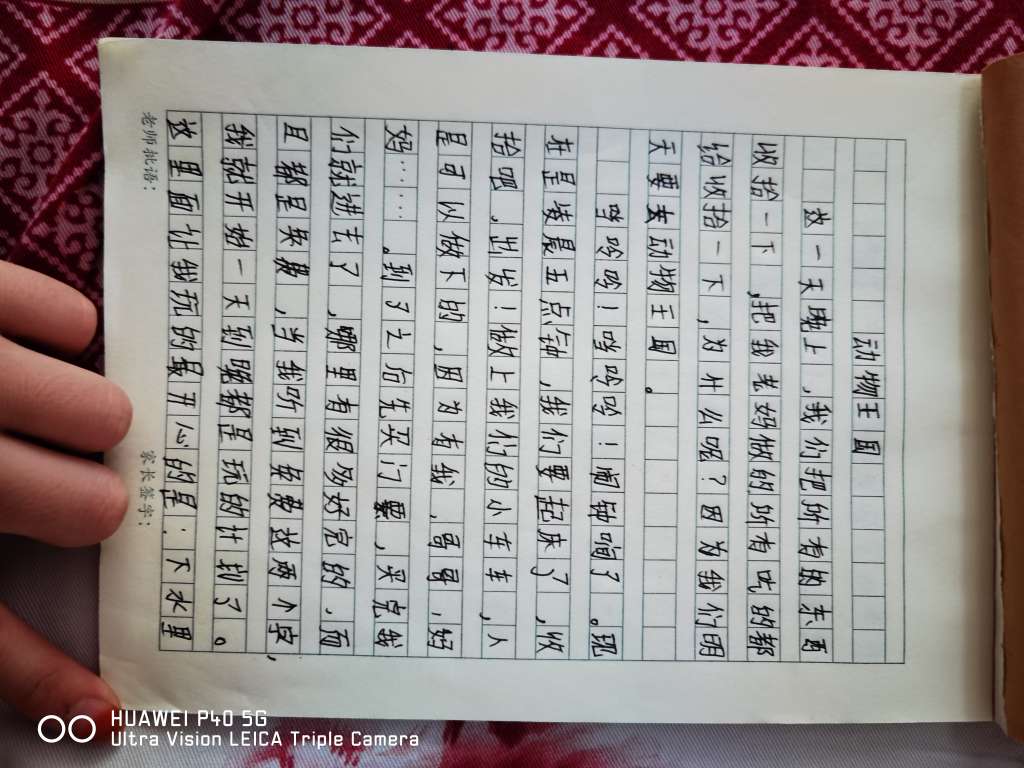 动物王国
这一天晚上，我们把所有的东西
收拾一下，把我老妈做的所有吃的都
给收拾一下，为什么呢？因为我们明
天要去动物王国。
哈哈！哈哈！闹钟响了。现
在是凌晨五点钟，我们要起床了，收
拾吧，出发！做上我们的小车车，人
是可以做下的，因为有我、哥哥、妈
妈……。到了之后先买门票，买完我
们就进去了，哪里有很多好完的，而
且都是免费，当我听到免费这两个字，
我就开始一天到晚都是玩的计划了。
这里面让我玩的最开心的是：下水里
老师批语：
家长签字：
HUAWEI P40 5G
Ultra Vision LEICA Triple Camera